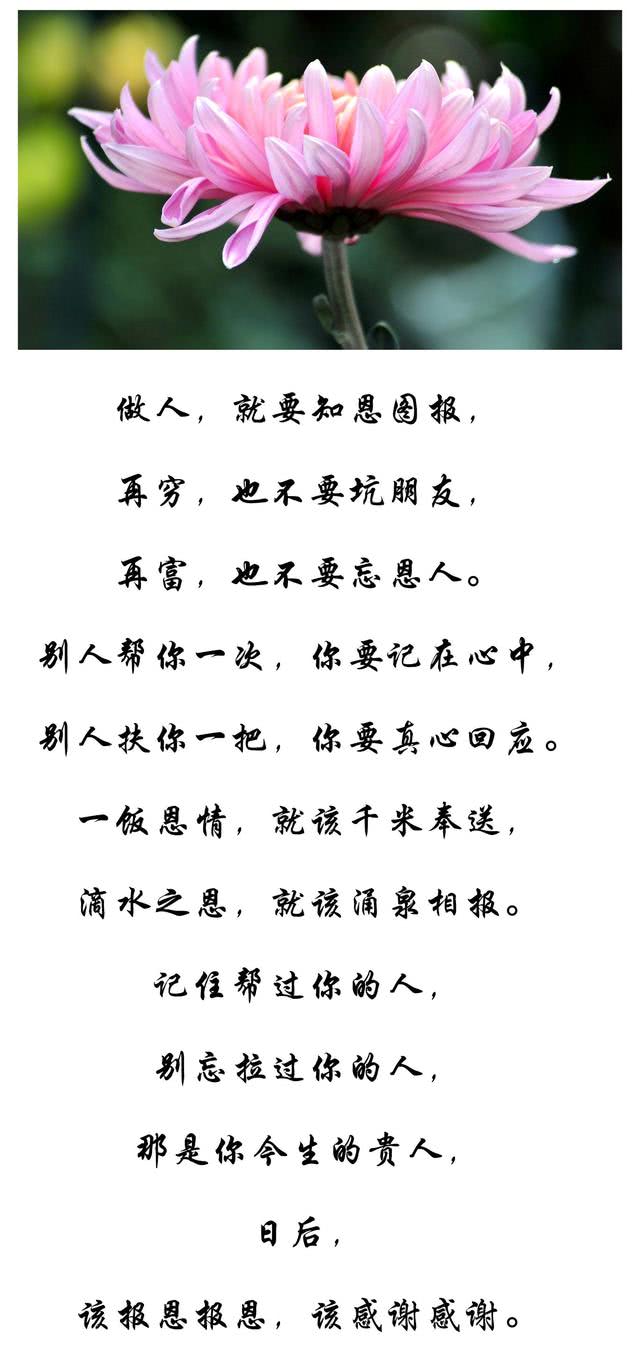 做人，就要知恩图报，
再穷，也不要坑朋友，
再富，也不要忘恩人。
别人帮你一次，你要记在心中，
别人扶你一把，你要真心回应。
一饭恩情，就该千米奉送，
滴水之恩，就该涌泉相报。
记住帮过你的人，
别忘拉过你的人，
那是你今生的贵人，
日后，
该报恩报恩，该感谢感谢。